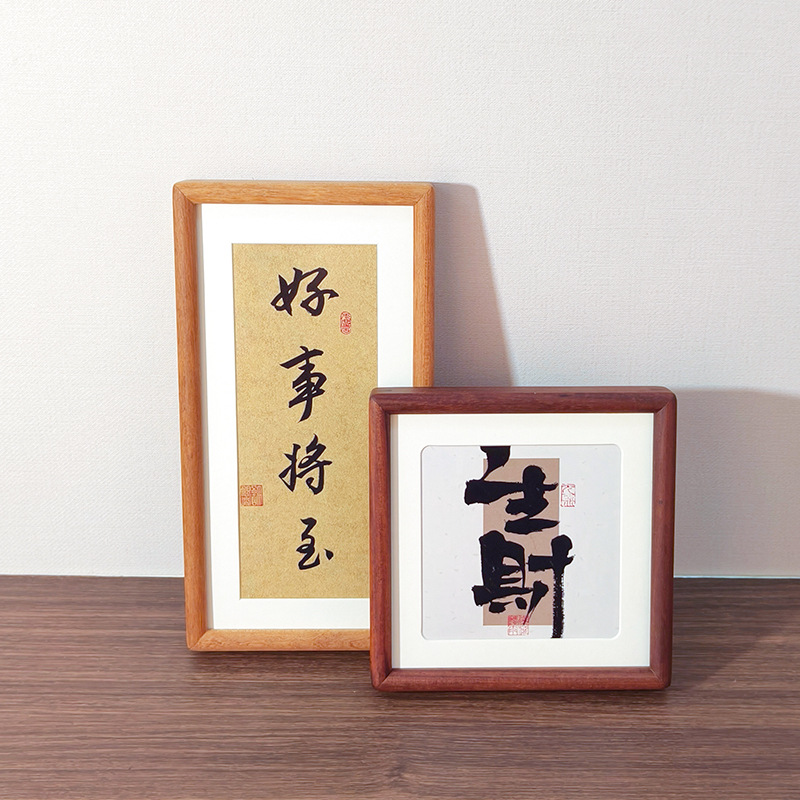 好事将至
生財